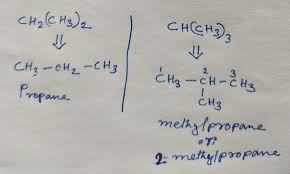 CH₂(CH₃)₂
⇓
CH₃ – CH₂ – CH₃
Propane
CH(CH₃)₃
⇓
1 2 3
CH₃ – CH – CH₃
|
CH₃
methylpropane
or
2-methylpropane